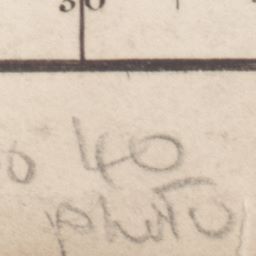 30
40
photo